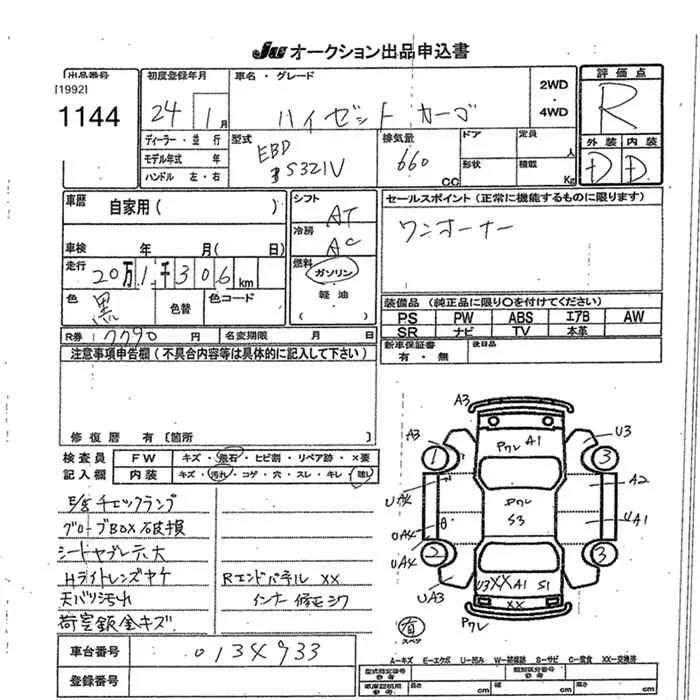 JU オークション出品申込書
出品番号
[1992]
1144
初度登録年月
24年 1月
車名・グレード
ハイゼット カーゴ
2WD
・
4WD
評価点
R
外装 内装
D D
ディーラー・並行
モデル年式 年
ハンドル 左・右
型式
EBD
S321V
排気量
660
CC
ドア
形状
定員
人
積載
Kg
車歴
自家用 ( )
車検 年 月 ( 日)
走行
20万1千306km
色
黒
色替
色コード
R券 7790 円
名変期限 月 日
シフト
AT
冷房
AC
燃料
ガソリン
・
軽油
( )
セールスポイント (正常に機能するものに限ります)
ワンオーナー
装備品 (純正品に限り○を付けてください)
PS PW ABS エアB AW
SR ナビ TV 本革
新車保証書
有・無
後日品
注意事項申告欄 (不具合内容等は具体的に記入して下さい)
修復歴 有 [箇所 ]
検査員
記入欄
FW キズ・飛石・ヒビ割・リペア跡・×要
内装 キズ・汚れ・コゲ・穴・スレ・キレ・
E/gチェックランプ
グローブBOX破損
シートヤブレ 大
Hライトレンズヤケ
天バリ汚れ
荷室鈑金キズ
Rエンドパネル XX
インナー修正
A3
A3
1
U3
3
Pクレ A1
A2
Pクレ
S3
UA1
UA4
UA4
2
3
UA3
U3 XX A1 S1
XX
Pクレ
有
スペア
A-キズ E-エクボ U-凹み W-補修跡 S-サビ C-腐食 XX-交換済
車台番号 0134933
登録番号
型式指定番号
参考
類別区分番号
参考
車庫証明用
参考
長さ cm 幅 cm 高さ cm